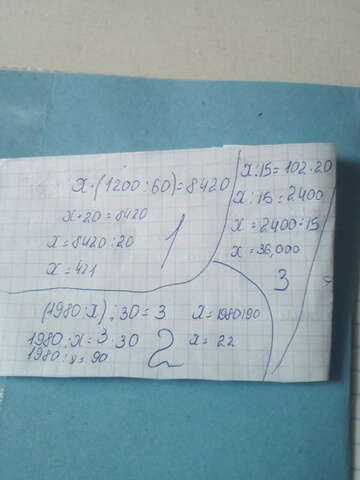 x·(1200:60)=8420
x·20=8420
x=8420:20
x=421
1
x:15=102·20
x:15=2400
x=2400·15
x=36,000
3
(1980:x):30=3
1980:x=3·30
1980:x=90
x=1980:90
x=22
2